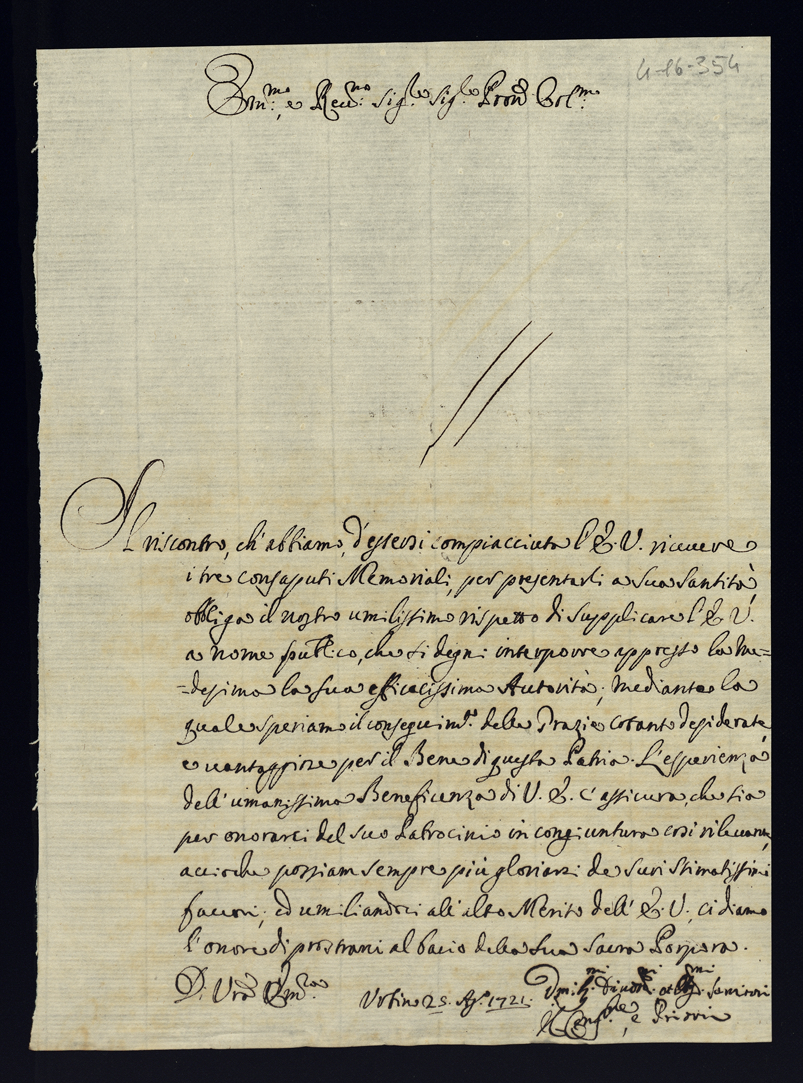 4-16-354
Em:mo, e Rev:mo Sig:re Sig:re Pron Col:mo
Il riscontro, ch'abbiamo, d'essersi compiacciuta l'E. V. ricevere
i tre consaputi Memoriali, per presentarli a Sua Santità,
obbliga il nostro umilissimo rispetto di supplicare l'E. V.
a nome publico, che si degni interporre appresso la me=
=desima la sua efficacissima Autorità; mediante la
quale speriamo il conseguim.to delle Grazie cotanto desiderate,
e vantaggiose per il Bene di questa Patria. L'esperienza
dell'umanissima Beneficenza di V. E. c'assicura, che sia
per onorarci del suo Patrocinio in congiuntura così rilevante,
acciochè possiam sempre più gloriarci de suoi stimatissimi
favori; ed umiliandoci all'alto Merito dell'E. V., ci diamo
l'onore di prostrarci al bacio della Sua Sacra Porpora.
Di Vra Em:za
Urbino 25 Ag.o 1721.
Umi:mi Divot:mi et Obl:mi Servitori
Il Conf:re, e Priori